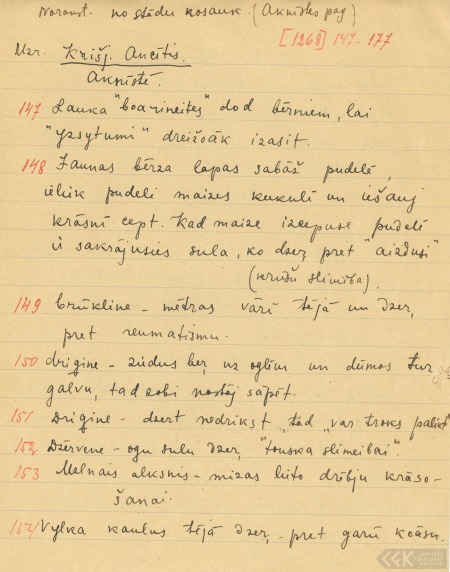 Norakst. no stādu nosauk. (Aknīstes pag)
[1268] 147-177
Uzr. Krišj. Ancītis.
Aknīstē.
147 Lauka "boarineites" dod bērniem, lai
"yzsytumi" dreižoāk izasit.
148 Jaunas bērza lapas sabāž pudelē,
ieliek pudeli maizes kukulī un iešauj
krāsnī cept. Kad maize izcepuse pudelē
ir sakrājusies sula, ko dzer pret "aizdusi"
(krūšu slimība).
149 brūkline - mētras vārī tējā un dzer,
pret reumatismu.
150 drigine - zūdus ber, uz oglīm un dūmos tur
galvu, tad zobi nostāj sāpēt.
151 Drigine - dzert nedrīkst, tad "var troks palikt"
152 Dzērvene - ogu sulu dzer, "touska slimeibai".
153 Melnais alksnis - mizas lieto drēbju krāso-
šanai.
154 Vylka kaulus tējā dzer, - pret garū koāsu.
LATVIEŠU FOLKLORAS KRĀTUVE